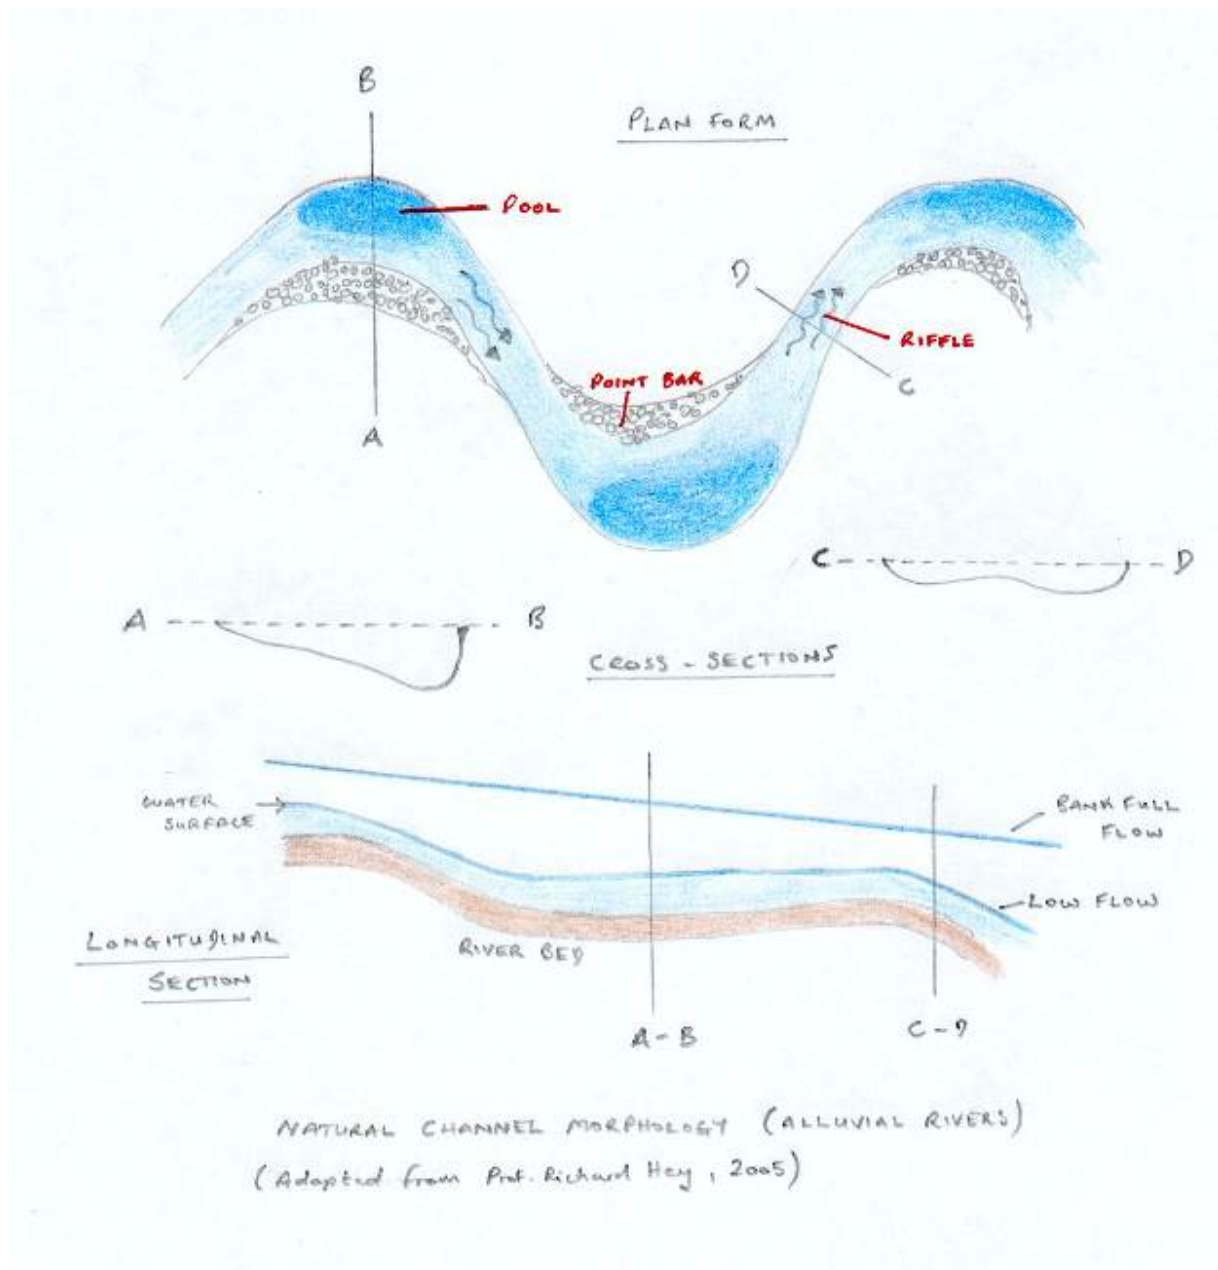 B
PLAN FORM
POOL
D
RIFFLE
POINT BAR
C
A
C
D
A
B
CROSS - SECTIONS
WATER
SURFACE
BANK FULL
FLOW
LOW FLOW
LONGITUDINAL
SECTION
RIVER BED
A - B
C - D
NATURAL CHANNEL MORPHOLOGY (ALLUVIAL RIVERS)
(Adapted from Prof. Richard Hey, 2005)